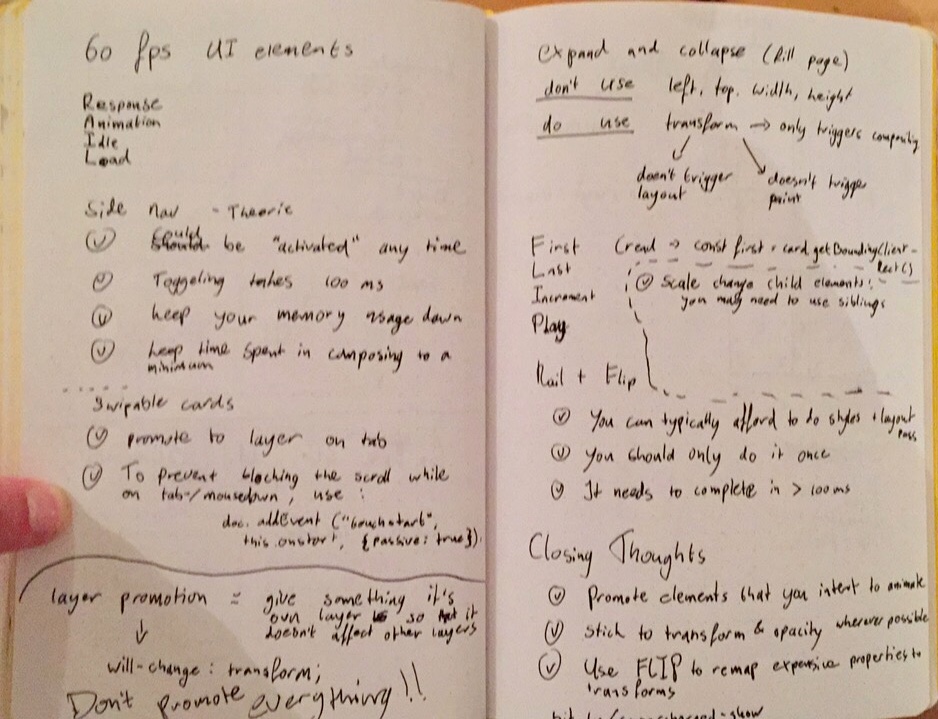 60 fps UI elements
Response
Animation
Idle
Load
Side nav - Theorie
could
should be "activated" any time
Toggeling takes 100 ms
keep your memory usage down
keep time spent in composing to a
minimum
Swipable cards
promote to layer on tab
To prevent blocking the scroll while
on tab-/mousedown, use:
doc. addEvent ("touchstart",
this.onstart, {passive: true})
layer promotion = give something it's
own layer so it
doesn't affect other layers
will-change: transform;
Don't promote everything!!
expand and collapse (fill page)
don't use left, top, width, height
do use transform → only triggers compositing
doesn't trigger
layout
doesn't trigger
paint
First (read → const first = card.getBoundingClient-
Rect()
Last
scale change child elements!
Increment
you may need to use siblings
Play
Rail + Flip
You can typically afford to do styles + layout
pass
You should only do it once
It needs to complete in > 100ms
Closing Thoughts
Promote elements that you intent to animate
stick to transform & opacity wherever possible
Use FLIP to remap expensive properties to
transforms